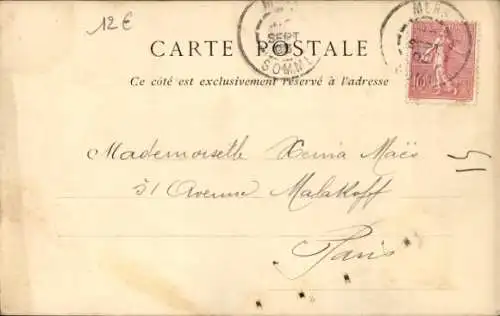 12€
CARTE POSTALE
Ce côté est exclusivement réservé à l'adresse
MERS
SEPT
SOMME
MERS
10
Mademoiselle Xenia Maës
51 Avenue Malakoff
Paris